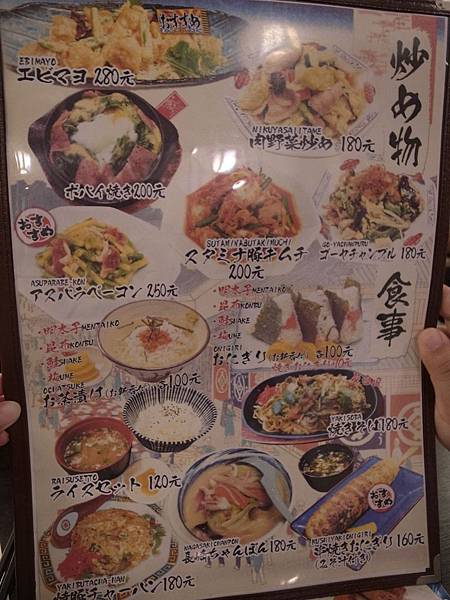 おすすめ
炒め物
EBIMAYO
エビマヨ 280元
NIKUYASAIITAME
肉野菜炒め 180元
ポパイ焼き 200元
SUTAMINABUTAKIMUCHI
スタミナ豚キムチ
200元
GO-YACHANPURU
ゴーヤチャンプル 180元
おすすめ
ASUPARABE-KON
アスパラベーコン 250元
食事
・明太子MENTAIKO
・昆布KONBU
・鮭SHAKE
・梅UME
OCHATSUKE
お茶漬け(お新香付) 各100元
・明太子MENTAIKO
・昆布KONBU
・鮭SHAKE
・梅UME
ONIGIRI
おにぎり(お新香付) 各100元
YAKISOBA
焼きそば180元
RAISUSETTO
ライスセット 120元
NAGASAKICHANPON
長崎ちゃんぽん180元
おすすめ
KUSHIYAKIONIGIRI
串焼きおにぎり 160元
YAKIBUTACHA-HAN
焼豚チャーハン180元